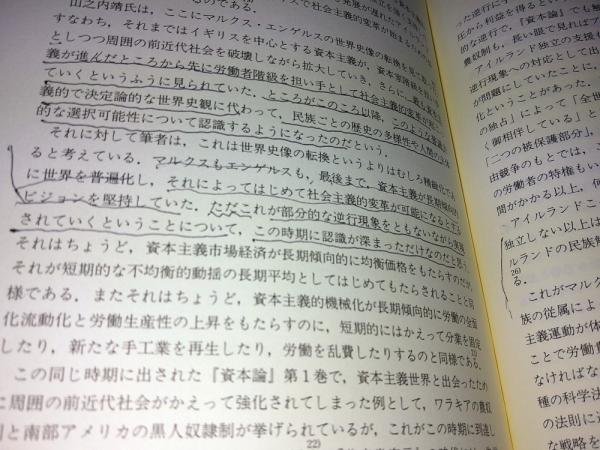 発展が遅れたアイルランドで社会主義的変革が
るのである。
山之内靖氏は、ここにマルクス・エンゲルスの世界史像の転換を見て
すなわち、それまではイギリスを中心とする資本主義が、資本家階級を担い手
としつつ周囲の前近代社会を破壊しながら拡大していき、さらに、最も資本主
義が進んだところから先に労働者階級を担い手として社会主義的変革が起こっ
ていくというふうに見られていた。ところがこのころ以降、このような普遍主
義的で決定論的な世界史観に代わって、民族ごとの歴史の多様性や人間の主体
的な選択可能性について認識するようになったのだという。
それに対して筆者は、これは世界史像の転換というよりはむしろ精緻化であ
ると考えている。マルクスもエンゲルスも、最後まで、資本主義が長期傾向的
に世界を普遍化し、それによってはじめて社会主義的変革が可能になるとする
ビジョンを堅持していた。ただこれが部分的な逆行現象をともないながら実現
されていくということについて、この時期に認識が深まっただけなのだと思う。
それはちょうど、資本主義市場経済が長期傾向的に均衡価格をもたらすのだが、
それが短期的な不均衡的動揺の長期平均としてはじめてもたらされることと同
様である。またそれはちょうど、資本主義的機械化が長期傾向的に労働の全面
化流動化と労働生産性の上昇をもたらすのに、短期的にはかえって分業を固定
したり、新たな手工業を再生したり、労働を乱費したりするのと同様である。
この同じ時期に出された『資本論』第1巻で、資本主義世界と出会ったため
に周囲の前近代社会がかえって強化されてしまった例として、ワラキアの農奴
制と南部アメリカの黒人奴隷制が挙げられているが、これがこの時期に到達し
22)
った逆行に
圧から利益を得ると
な逆行で、『資本論』でも触
農奴制も、長い眼で見ればア
アイルランド独立の支援
逆行現象への対応として出
が問題にしていたことに、
化ということがあった。
の独占」として「全世
く御相伴している」と
「二つの被保護部分」
由競争のもとでは、
の労働者の特権もい
間がかかる以上、何
アイルランドこ
独立しない以上は
ルランドの民族
26)
る。
これがマル
族の従属によ
主義運動が体
ことで労働貴
なければな
種の科学法
の法則に
な戦略を